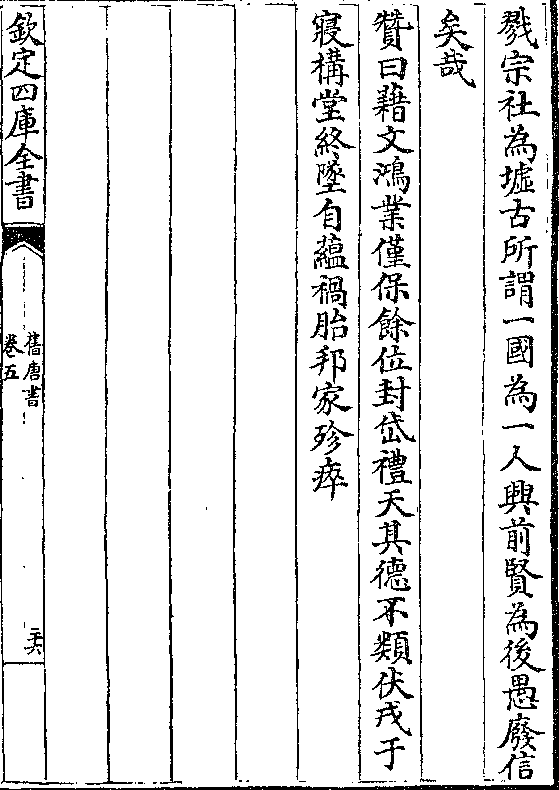 戮宗社為墟古所謂一國為一人興前賢為後愚廢信
矣哉
贊曰藉文鴻業僅保餘位封岱禮天其德不類伏戎于
寢構堂終墜自藴禍胎邦家殄瘁
欽定四庫全書
舊唐書
卷五
二十六